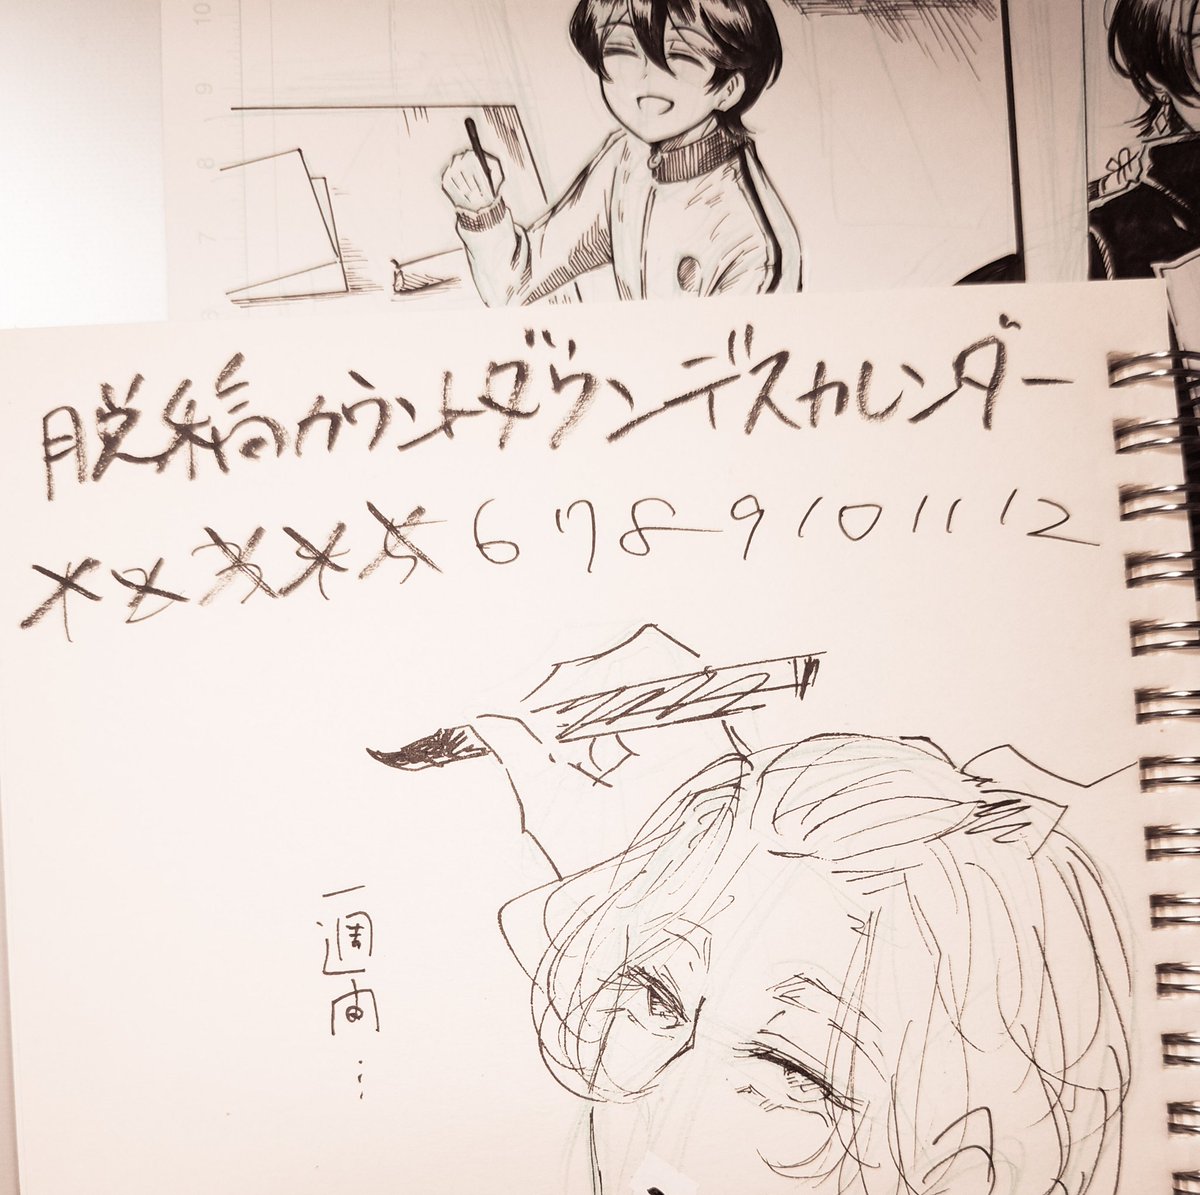 10
9
8
7
脱稿カウントダウンデスカレンダー
1 2 3 4 5 6 7 8 9 10 11 12
一週間…